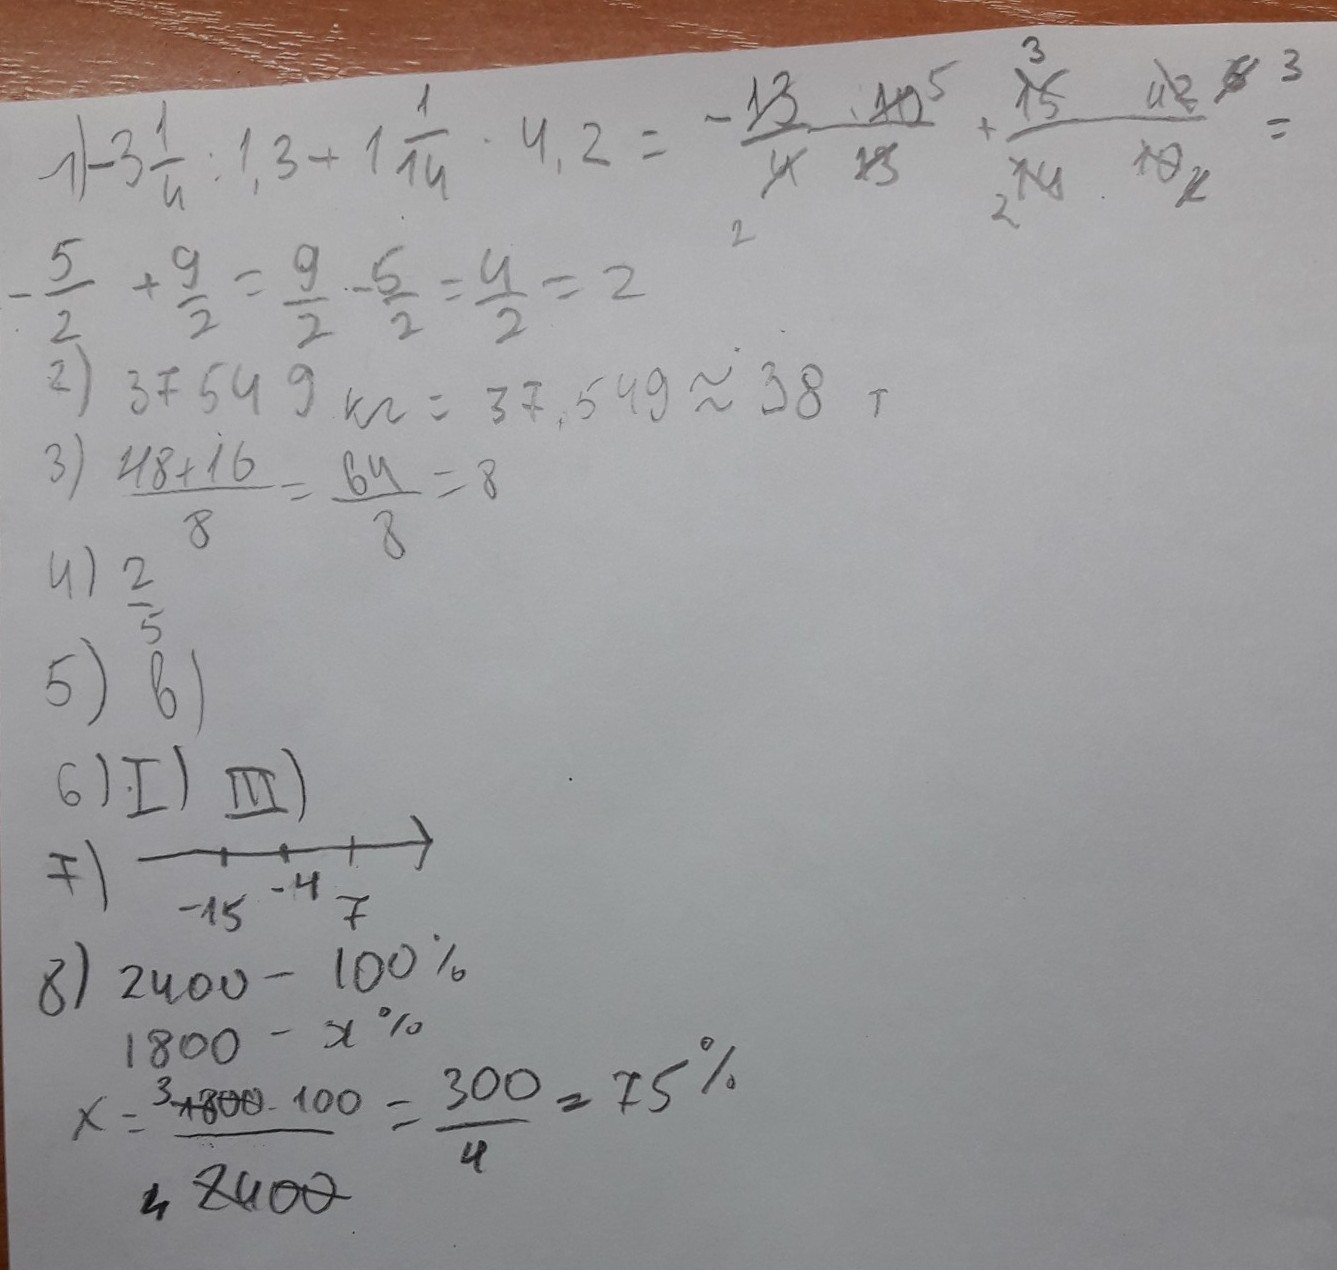 1) -3 1/4 : 1,3 + 1 1/14 · 4,2 = - 13/4 · 10/13 + 15/14 · 42/10 =
- 5/2 + 9/2 = 9/2 - 5/2 = 4/2 = 2
2) 37549 кг = 37,549 ≈ 38 т
3) 48+16/8 = 64/8 = 8
4) 2/5
5) в)
6) I) III)
7) -15 -4 7
8) 2400 - 100%
1800 - x%
x = 1800·100/2400 = 300/4 = 75%